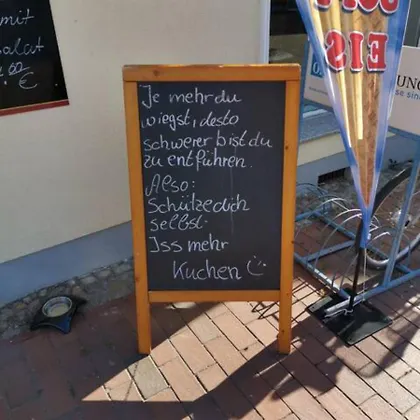 mit
Salat
€
Je mehr du
wiegst, desto
schwerer bist du
zu entführen.
Also:
Schütze dich
selbst.
Iss mehr
Kuchen
EIS
UNG
se sin